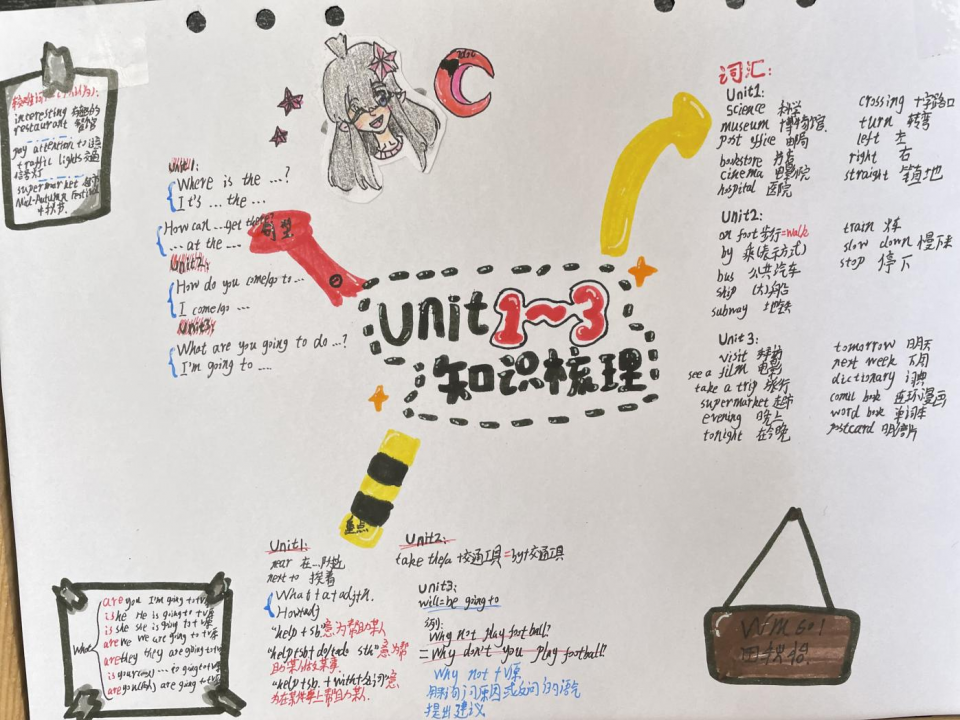 interesting 有趣的
restaurant 餐馆
pay attention to 注意
traffic lights 交通
信号灯
supermarket 超市
Mid-Autumn Festival
中秋节
Unit1:
Where is the ...?
It's ... the ...
How can ...get there?
... at the ...
Unit2:
How do you come/go to ...
I come/go ...
Unit3:
What are you going to do ...?
I'm going to ....
句型
Unit 1~3
知识梳理
词汇:
Unit1:
science 科学
museum 博物馆
post office 邮局
bookstore 书店
cinema 电影院
hospital 医院
crossing 十字路口
turn 转弯
left 左
right 右
straight 笔直地
Unit2:
on foot 步行=walk
by 乘(表示方式)
bus 公共汽车
ship (大)船
subway 地铁
train 火车
slow down 慢下来
stop 停下
Unit 3:
visit 拜访
see a film 看电影
take a trip 旅行
supermarket 超市
evening 晚上
tonight 在今晚
tomorrow 明天
next week 下周
dictionary 词典
comic book 连环漫画
word book 单词本
postcard 明信片
重点
Unit1:
near 在...附近
next to 挨着
What+a+adj+n.
How+adj
"help + sb"意为帮助某人
"help+sb+do/to do sth"意为帮
助某人做某事
"help+sb. + with+名词"意
为在某件事上帮助某人.
Unit2:
take the/a +交通工具=by+交通工具
Unit3:
will=be going to
例:
Why not play football?
=Why don't you play football?
Why not +V原
用来询问原因或反问的语气
提出建议
What
are you I'm going to+V原
is he He is going to+V原
is she she is going to+V原
are we we are going to+V原
are they they are going to+V原
are you(all) are going to+V原